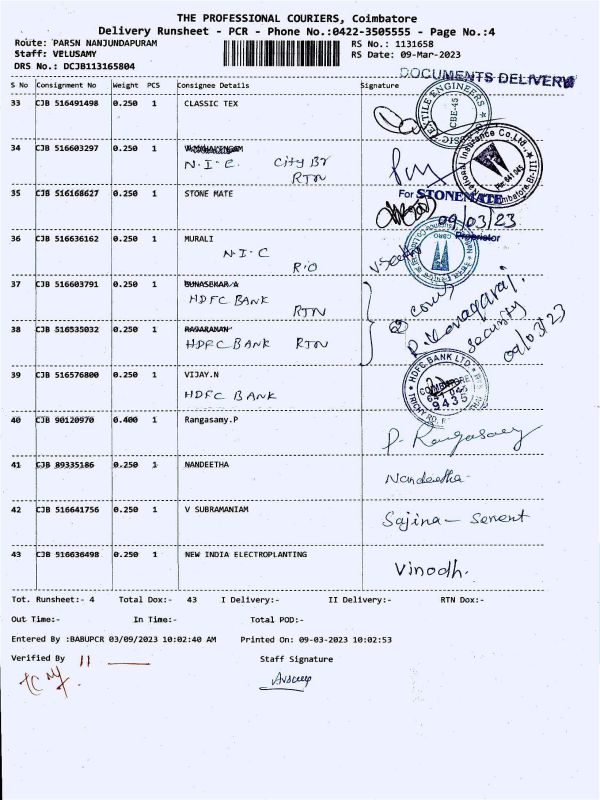 THE PROFESSIONAL COURIERS, Coimbatore
Delivery Runsheet - PCR - Phone No.:0422-3505555 - Page No.:4
Route: PARSN NANJUNDAPURAM RS No.: 1131658
Staff: VELUSAMY RS Date: 09-Mar-2023
DRS No.: DCJB113165804
DOCUMENTS DELIVERY
S No Consignment No Weight PCS Consignee Details Signature
33 CJB 516491498 0.250 1 CLASSIC TEX
TEXTILE ENGINEERS
CBE-45
34 CJB 516603297 0.250 1
N.I.C. City Br
RTN
National Insurance Co.Ltd.,
35 CJB 516168627 0.250 1 STONE MATE
For STONEMATE
09/03/23
Proprietor
36 CJB 516636162 0.250 1 MURALI
N.I.C
R.O
37 CJB 516603791 0.250 1 GUNASEKAR A
HDFC BANK
RTN
38 CJB 516535032 0.250 1
HDFC BANK RTN
Security
09/03/23
39 CJB 516576800 0.250 1 VIJAY.N
HDFC BANK
HDFC BANK LTD
COIMBATORE
641 045
9435
TRICHY RD.
40 CJB 90120970 0.400 1 Rangasamy.P
P. Rangasamy
41 CJB 89335186 0.250 1 NANDEETHA
Nandeetha
42 CJB 516641756 0.250 1 V SUBRAMANIAM
Sajina - Servent
43 CJB 516636498 0.250 1 NEW INDIA ELECTROPLANTING
Vinodh.
Tot. Runsheet:- 4 Total Dox:- 43 I Delivery:- II Delivery:- RTN Dox:-
Out Time:- In Time:- Total POD:-
Entered By :BABUPCR 03/09/2023 10:02:40 AM Printed On: 09-03-2023 10:02:53
Verified By Staff Signature